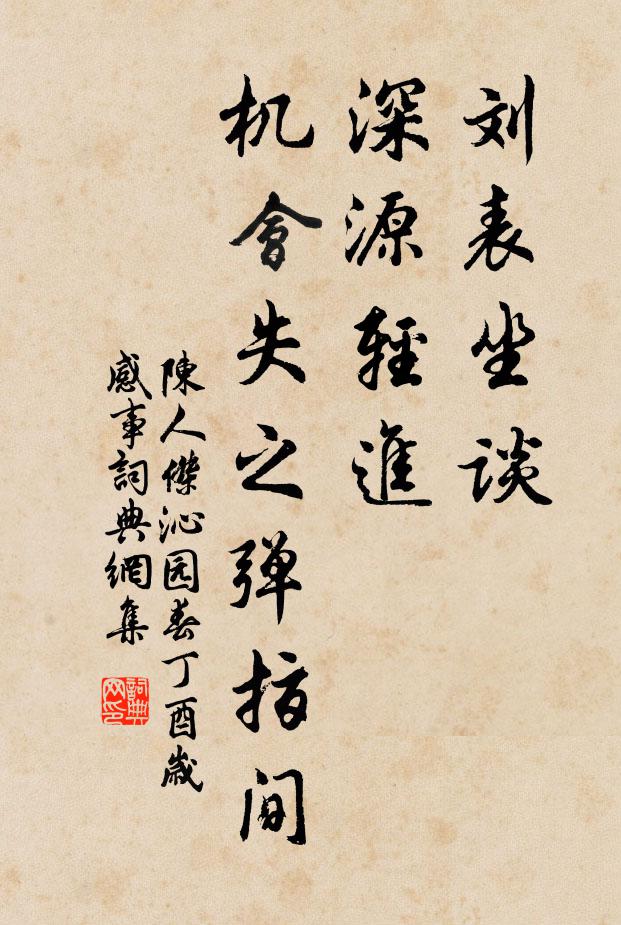 刘表坐谈
深源輕進
机會失之弹指间
陳人傑沁园春丁酉歲
感事詞典網集
詞典
网印